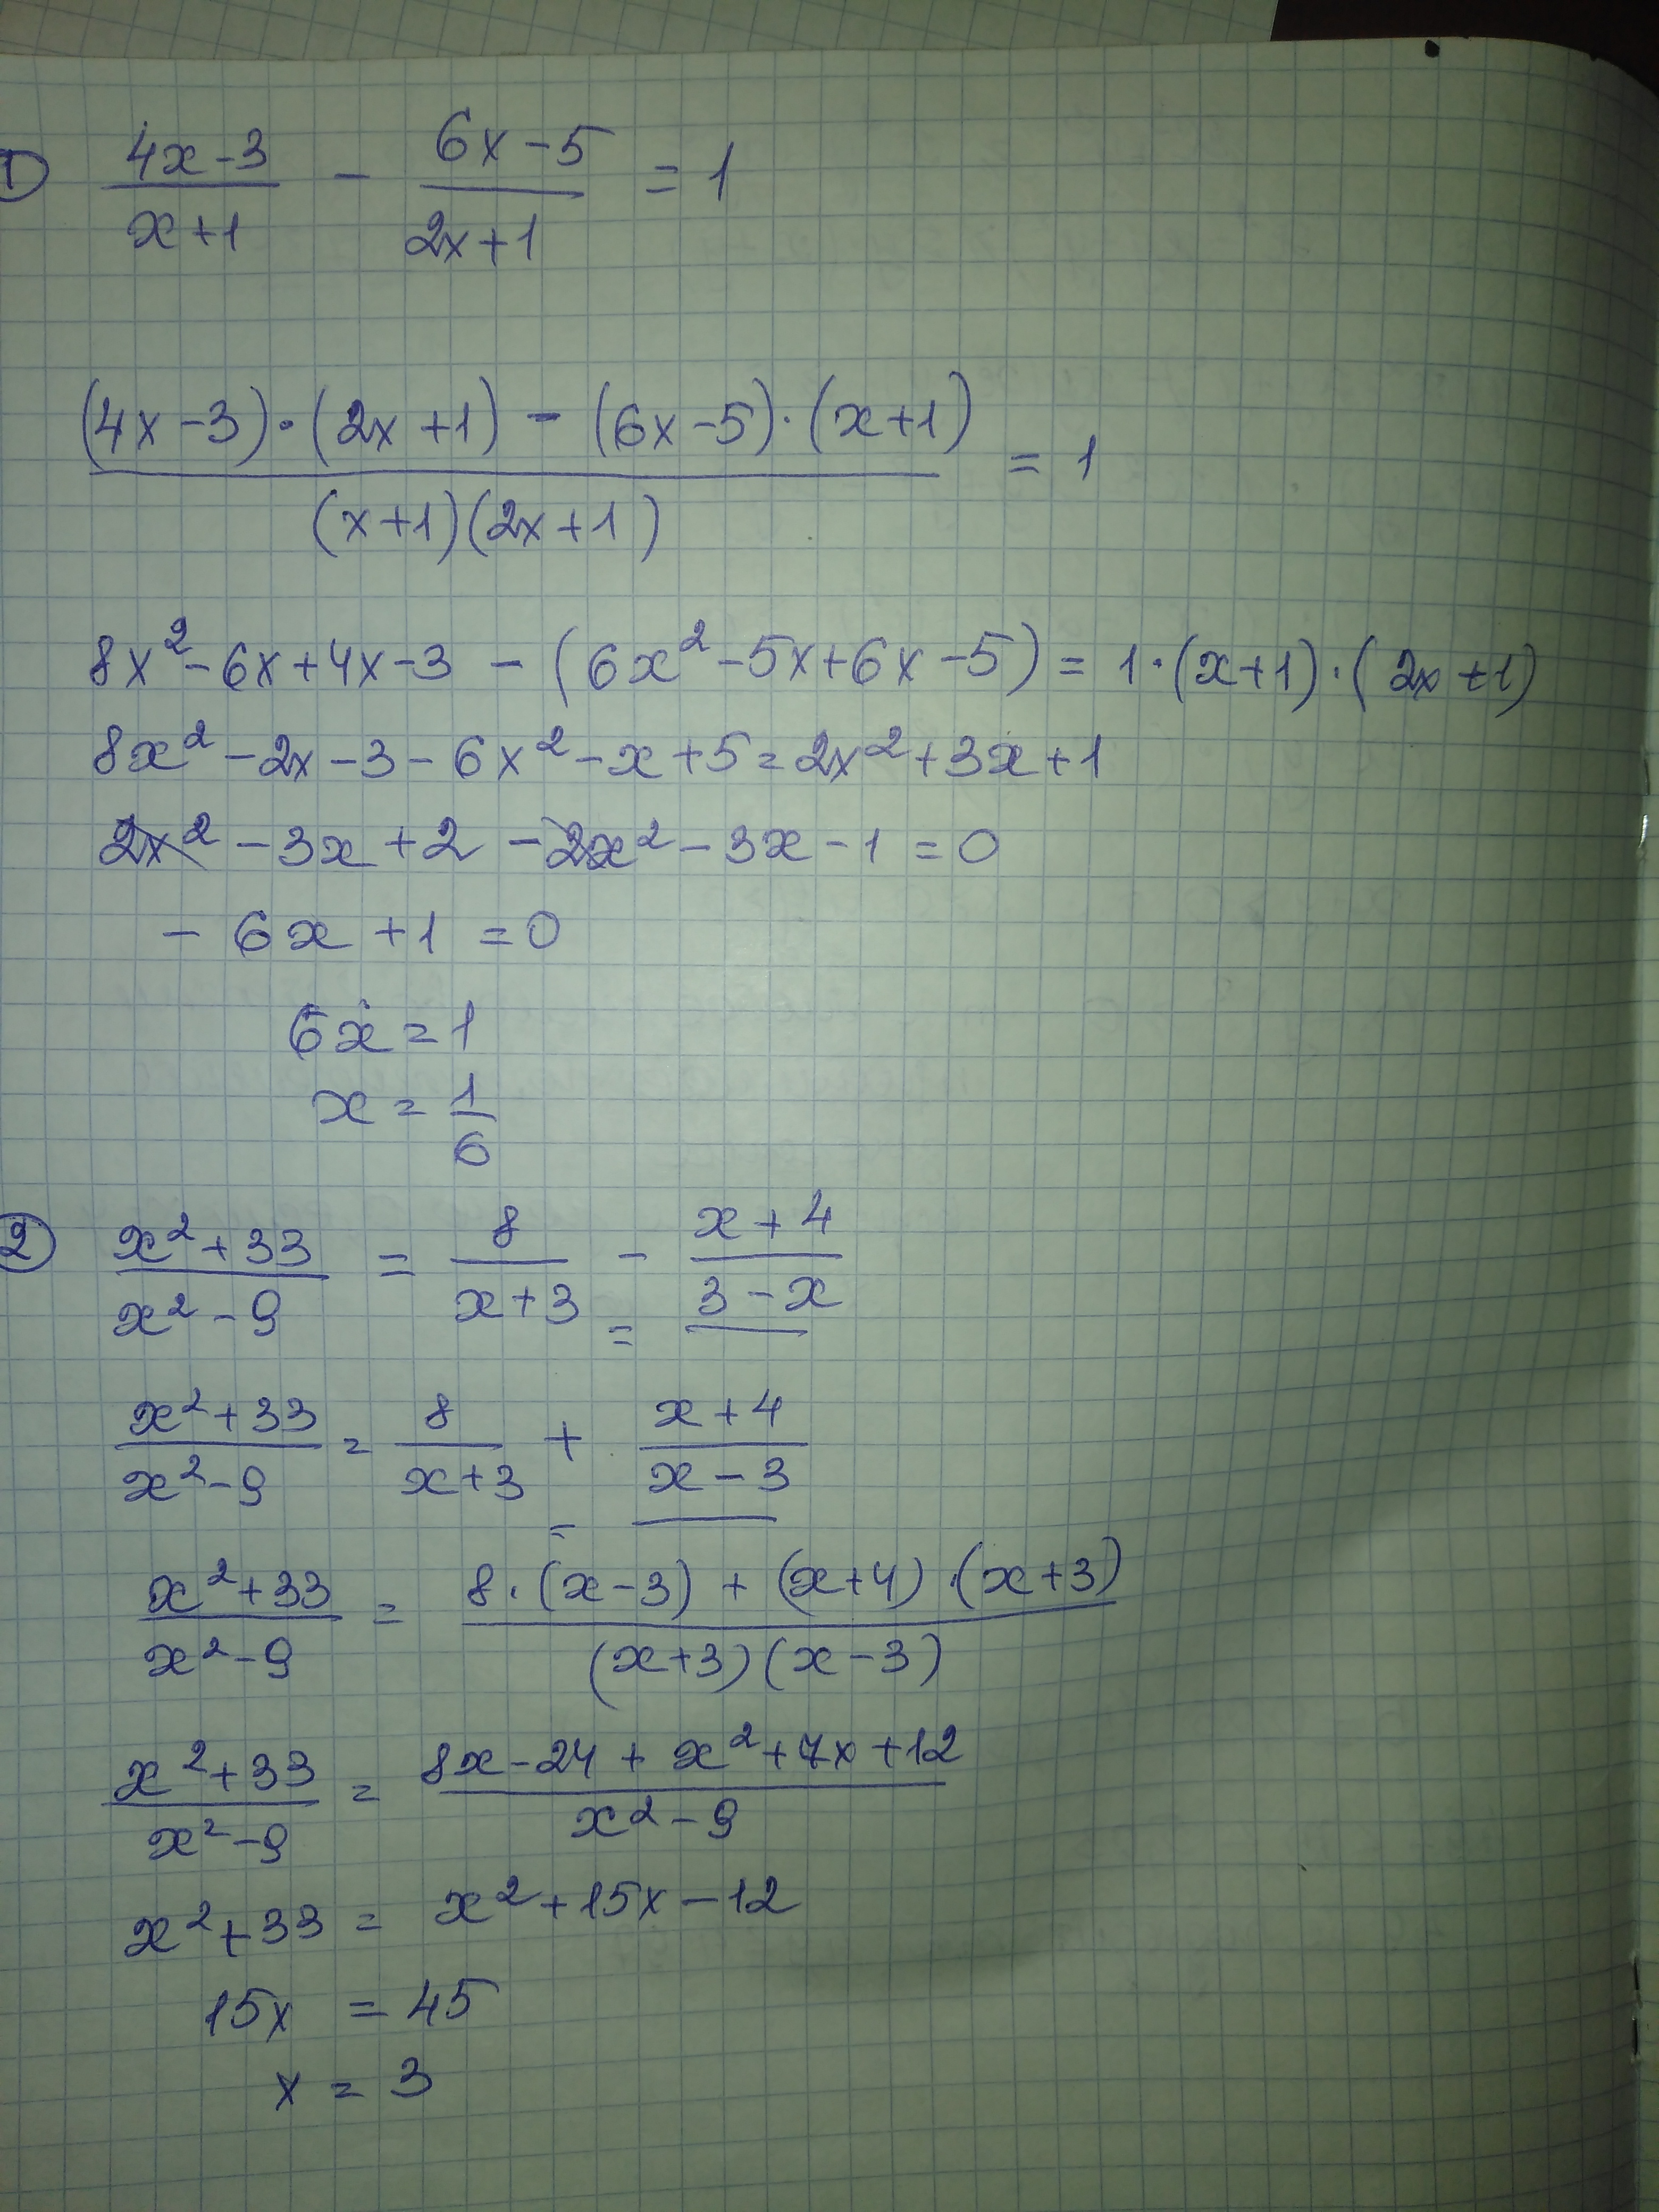 ① (4x-3)/(x+1) - (6x-5)/(2x+1) = 1
((4x-3)·(2x+1) - (6x-5)·(x+1))/((x+1)(2x+1)) = 1
8x² - 6x + 4x - 3 - (6x² - 5x + 6x - 5) = 1·(x+1)·(2x+1)
8x² - 2x - 3 - 6x² - x + 5 = 2x² + 3x + 1
2x² - 3x + 2 - 2x² - 3x - 1 = 0
- 6x + 1 = 0
6x = 1
x = 1/6
② (x²+33)/(x²-9) = 8/(x+3) - (x+4)/(3-x)
(x²+33)/(x²-9) = 8/(x+3) + (x+4)/(x-3)
(x²+33)/(x²-9) = (8·(x-3) + (x+4)·(x+3))/((x+3)(x-3))
(x²+33)/(x²-9) = (8x-24 + x²+7x+12)/(x²-9)
x²+33 = x²+15x-12
15x = 45
x = 3